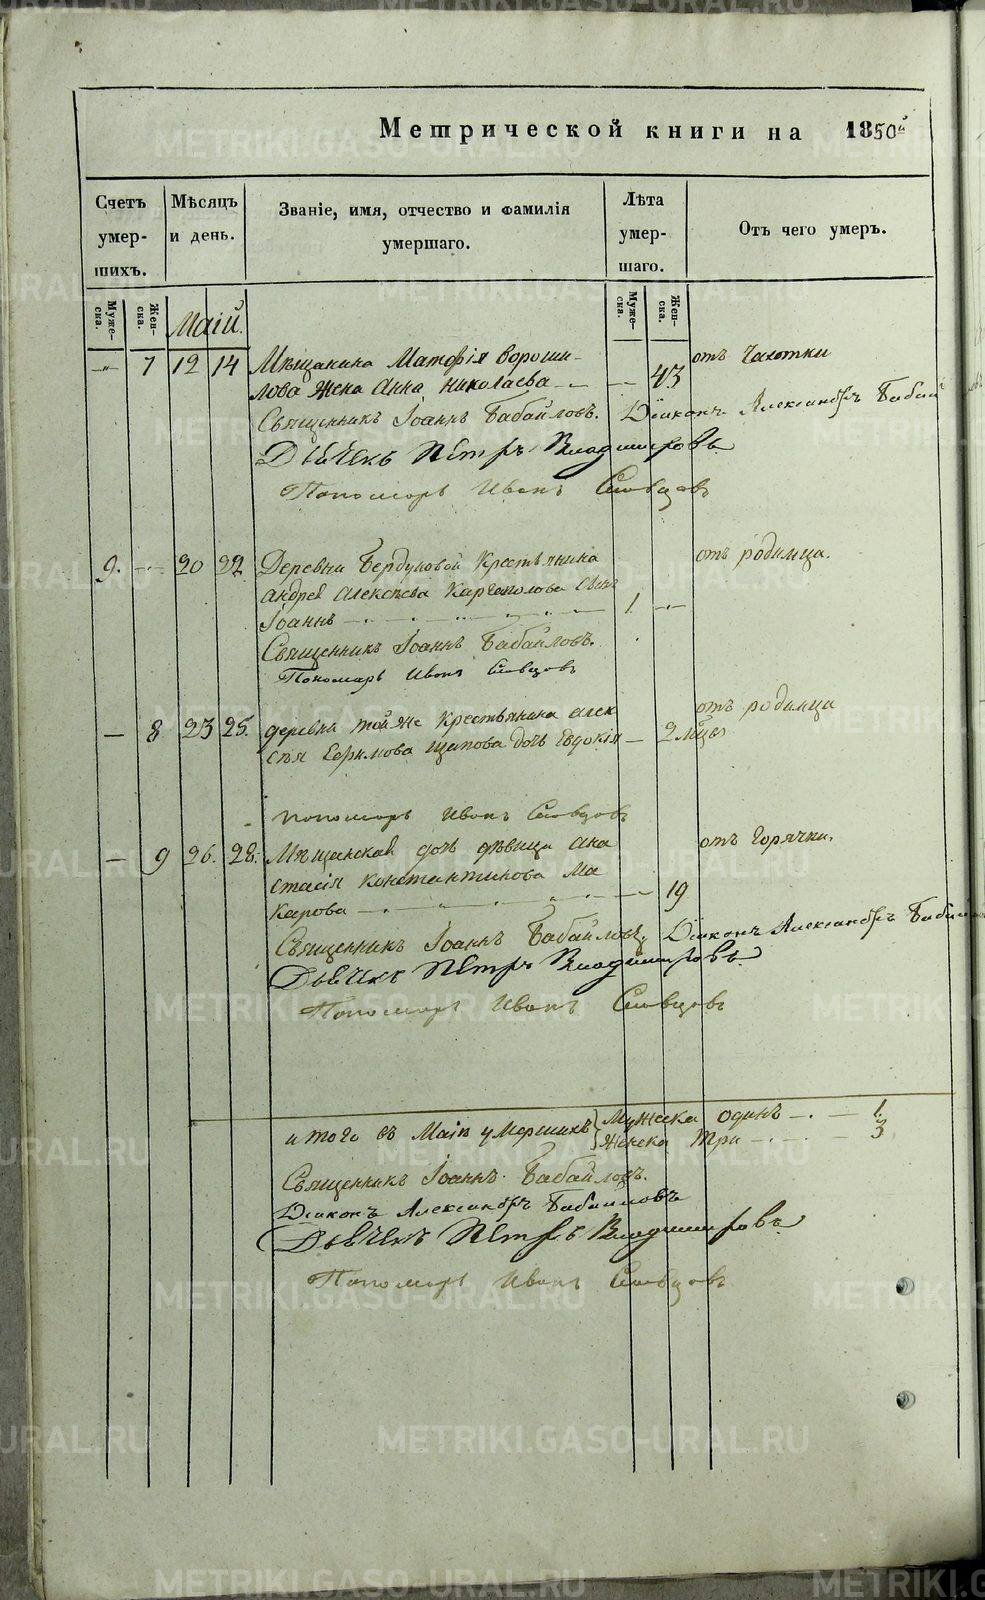 Метрической книги на 1850й
Счетъ умер-шихъ.
Мѣсяцъ и день.
Званіе, имя, отчество и фамилія умершаго.
Лѣта умер-шаго.
Отъ чего умеръ.
Муже-ска.
Жен-ска.
Маій.
Муже-ска.
Жен-ска.
—"— 7 12 14 Мѣщанина Матфія Вороши- отъ чахотки
лова жена Анна Николаева — — 43
Священникъ Іоаннъ Бабайловъ. Діаконъ Александръ Бабай
Дьячекъ Петръ Владимировъ
Пономарь Иванъ Словцовъ
9. — 20 22 Деревни Бердуковой Крестьянина отъ родимца.
Андрея Алексѣева Каргополова сынъ
Іоаннъ — 1. —"—
Священникъ Іоаннъ Бабайловъ.
Пономарь Иванъ Словцовъ
— 8 23 25. деревни той же крестьянина Алек отъ родимца
сѣя Щипова дочь Евдокія — 2 мѣся
Пономарь Иванъ Словцовъ
— 9 26. 28. Мѣщанская дочь дѣвица Ана отъ горячки.
стасія Константинова Ма
карова — — 19
Священникъ Іоаннъ Бабайловъ, Діаконъ Александръ Бабайл
Дьячекъ Петръ Владимировъ
Пономарь Иванъ Словцовъ
итого въ Маіѣ умершихъ { Мужеска одинъ — 1.
Женска три — 3
Священникъ Іоаннъ Бабайловъ.
Діаконъ Александръ Бабайловъ
Дьячекъ Петръ Владимировъ
Пономарь Иванъ Словцовъ
METRIKI.GASO-URAL.RU